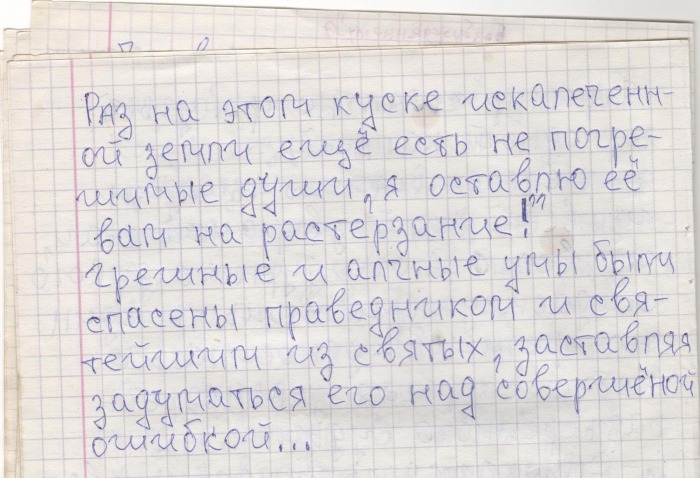 Раз на этом куске искалеченн-
ой земли ещё есть не погре-
шимые души, я оставлю её
вам на растерзание!"
грешные и алчные умы были
спасены праведником и свя-
тейшим из святых, заставляя
задуматься его над совершёной
ошибкой...